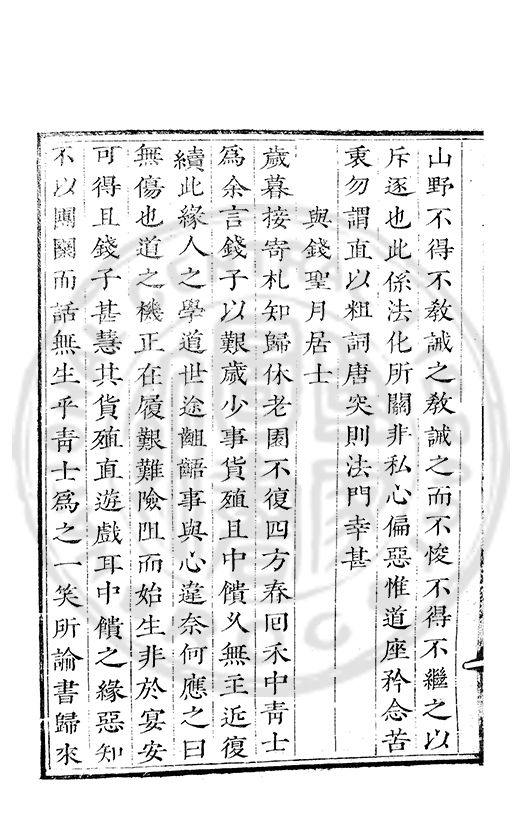 山野不得不敎誡之敎誡之而不悛不得不繼之以
斥逐也此係法化所關非私心偏惡惟道座矜念苦
衷勿謂直以粗詞唐突則法門幸甚
與錢聖月居士
歲暮接寄札知歸休老圃不復四方春囘禾中靑士
爲余言錢子以艱歲少事貨殖且中饋久無主近復
續此緣人之學道世途齟齬事與心違奈何應之曰
無傷也道之機正在履艱難險阻而始生非於宴安
可得且錢子甚慧其貨殖直遊戲耳中饋之緣惡知
不以團圞而話無生乎靑士爲之一笑所論書歸來